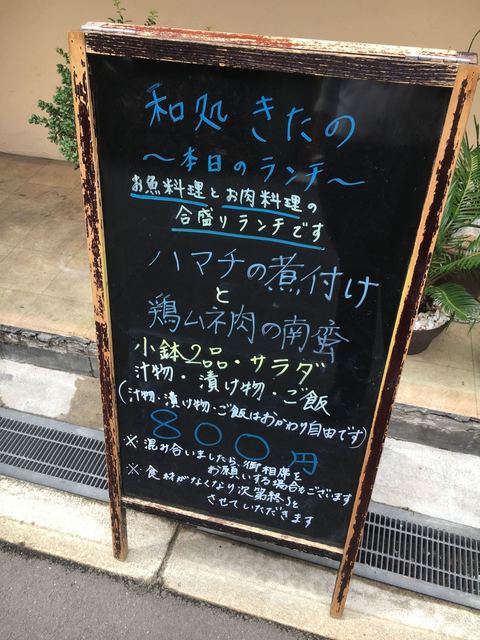 和処 きたの
～本日のランチ～
お魚料理とお肉料理の
合盛りランチです
ハマチの煮付け
と
鶏ムネ肉の南蛮
小鉢2品・サラダ
汁物・漬け物・ご飯
(汁物・漬け物・ご飯はおかわり自由です)
800円
※混み合いましたら、御相席を
お願いする場合もございます
※食材がなくなり次第終了と
させていただきます